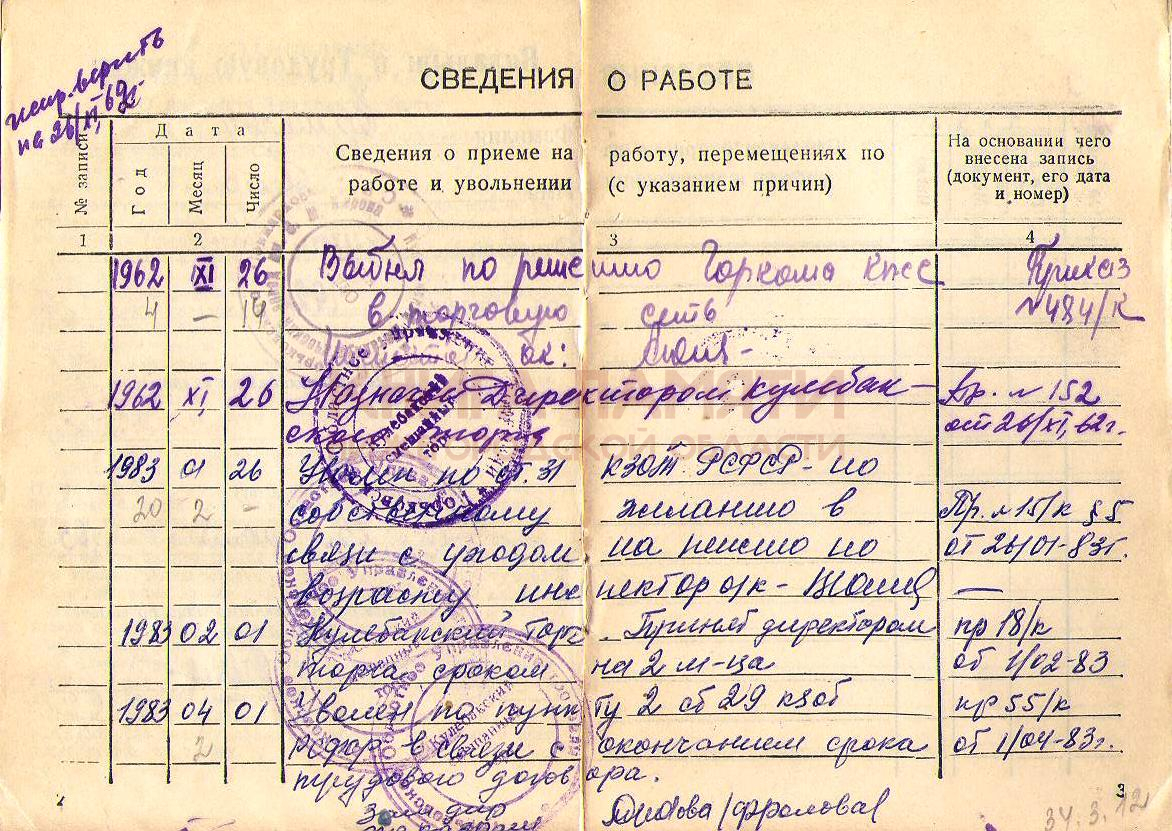 испр. верить
на 26/XI, 62г.
СВЕДЕНИЯ О РАБОТЕ
№ записи
Дата
Год
Месяц
Число
Сведения о приеме на работу, перемещениях по
работе и увольнении (с указанием причин)
На основании чего
внесена запись
(документ, его дата
и номер)
1 2 3 4
1962 XI 26 Выбыл по решению Горкома КПСС Приказ
4 – 19 в торговую сеть № 484/к
ок:
1962 XI, 26 Назначен Директором Кулебак– Пр. № 152
ского торга от 26/XI, 62г.
КНИГА ПАМЯТИ
1983 01 26 Уволен по ст. 31 КЗОТ РСФСР – по
20 2 – собственному желанию в Пр. № 15/к § 5
связи с уходом на пенсию по от 26/01-83г.
возрасту инспектор о/к –
1983 02 01 Кулебакский Горторг. Принят директором пр 18/к
торга сроком на 2 м-ца об 1/02-83
1983 04 01 Уволен по пункту 2 сб 29 кзоб пр 55/к
2 РСФСР в связи с окончанием срока об 1/04-83г.
трудового договора.
Зам. дир
/Фролова/
3
34.3.12